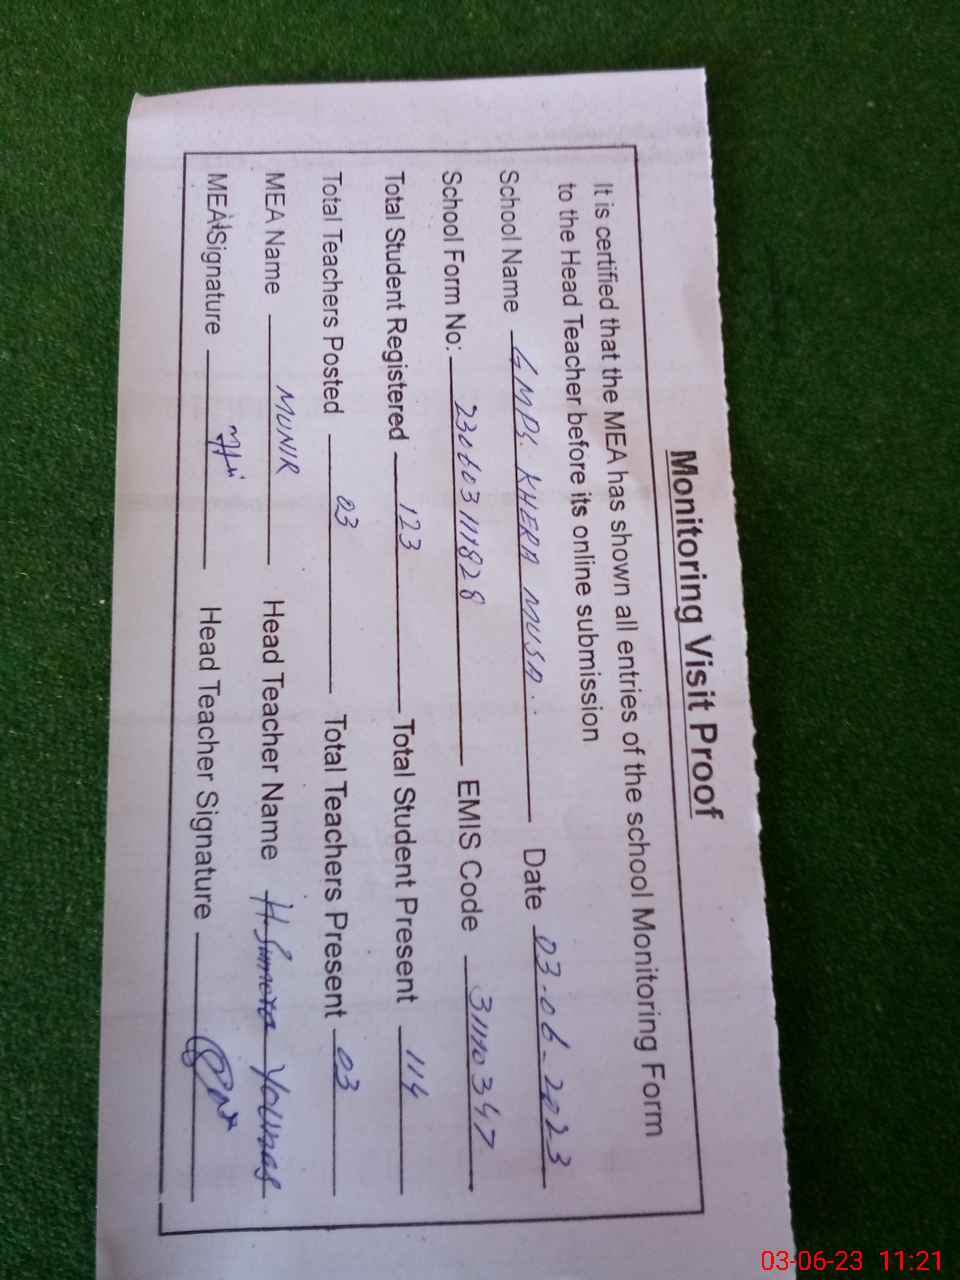 Monitoring Visit Proof
It is certified that the MEA has shown all entries of the school Monitoring Form
to the Head Teacher before its online submission
School Name GMPS. KHERA MUSA. Date 03-06-2023
School Form No: 230603111828 EMIS Code 31110347
Total Student Registered 123 Total Student Present 114
Total Teachers Posted 03 Total Teachers Present 03
MEA Name MUNIR Head Teacher Name H. Sumera Younas
MEA Signature Head Teacher Signature
03-06-23 11:21